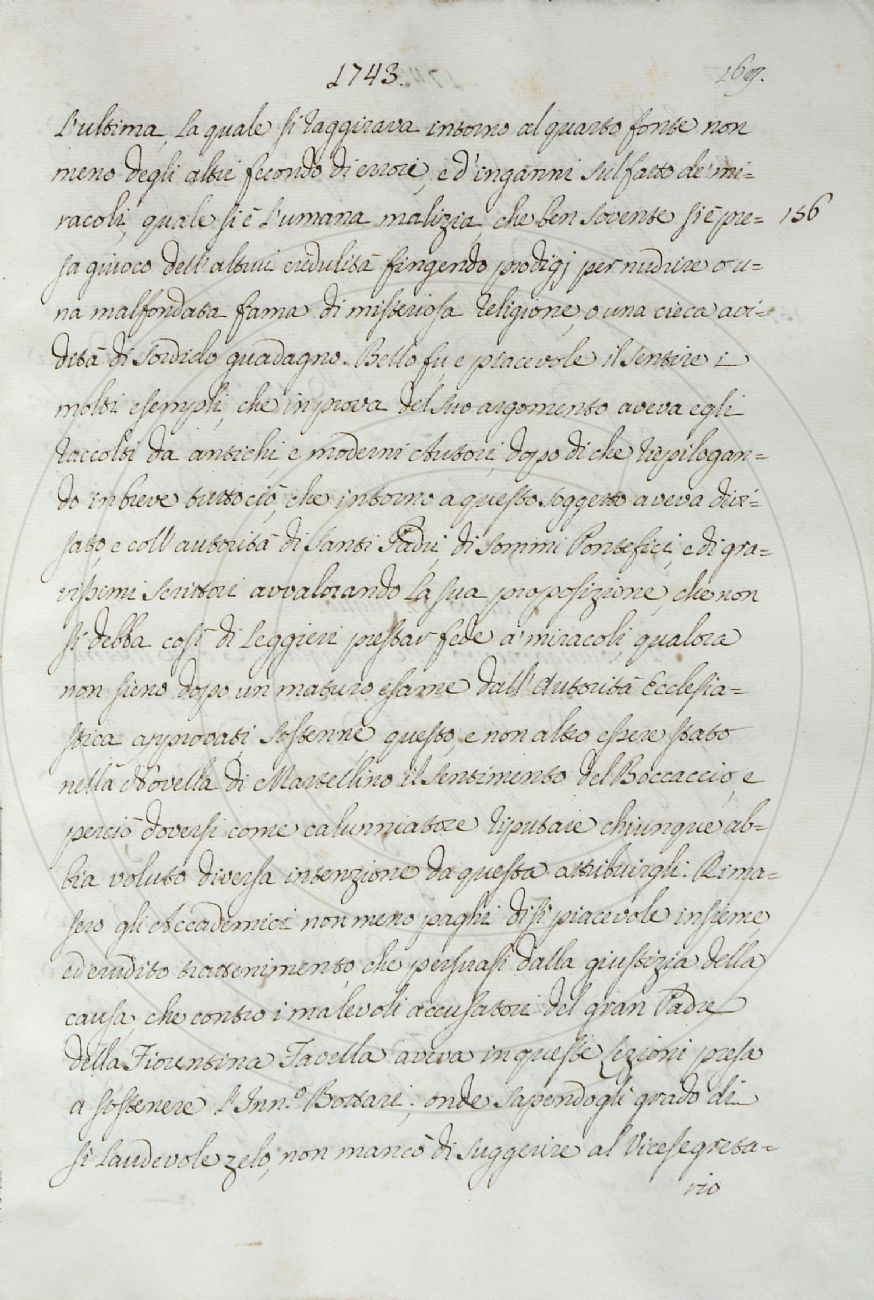 1743. 169.
L'ultima, la quale si raggirava intorno al quarto fonte non
meno degli altri fecondo di errori, e d'inganni sul fatto de' mi=
racoli, quale si è l'umana malizia, che ben sovente si è pre= 156
sa giuoco dell'altrui credulità fingendo prodigj per nudrire o u=
na malfondata fama di misteriosa religione, o una cieca avi=
dità di sordido guadagno. Bello fu, e piacevole il sentire i
molti esempli, che in prova del suo argomento aveva egli
raccolti da antichi e moderni Autori, dopo di che riepilogan=
do in breve tutto ciò, che intorno a questo soggetto aveva divi=
sato, e coll'autorità di Santi Padri, di Sommi Pontefici, e di gra=
vissimi Scrittori avvalorando la sua proposizione, che non
si debba così di leggieri prestar fede a' miracoli, qualora
non sieno dopo un maturo esame dall'Autorità Ecclesia=
stica approvati sostenne, questo, e non altro essere stato
nella Novella di Martellino il sentimento del Boccaccio, e
perciò doversi come calunniatore riputare chiunque ab=
bia voluto diversa intenzione da questa attribuirgli. Rima=
sero gli Accademici non meno paghi di sì piacevole insieme,
ed erudito trattenimento, che persuasi dalla giustizia della
causa, che contro i malevoli accusatori del gran Padre
della Fiorentina Favella aveva in queste lezioni presa
a sostenere l'Inn.º Bottari; onde sapendogli grado di
sì laudevole zelo, non mancò di suggerire al Vicesegreta=
rio